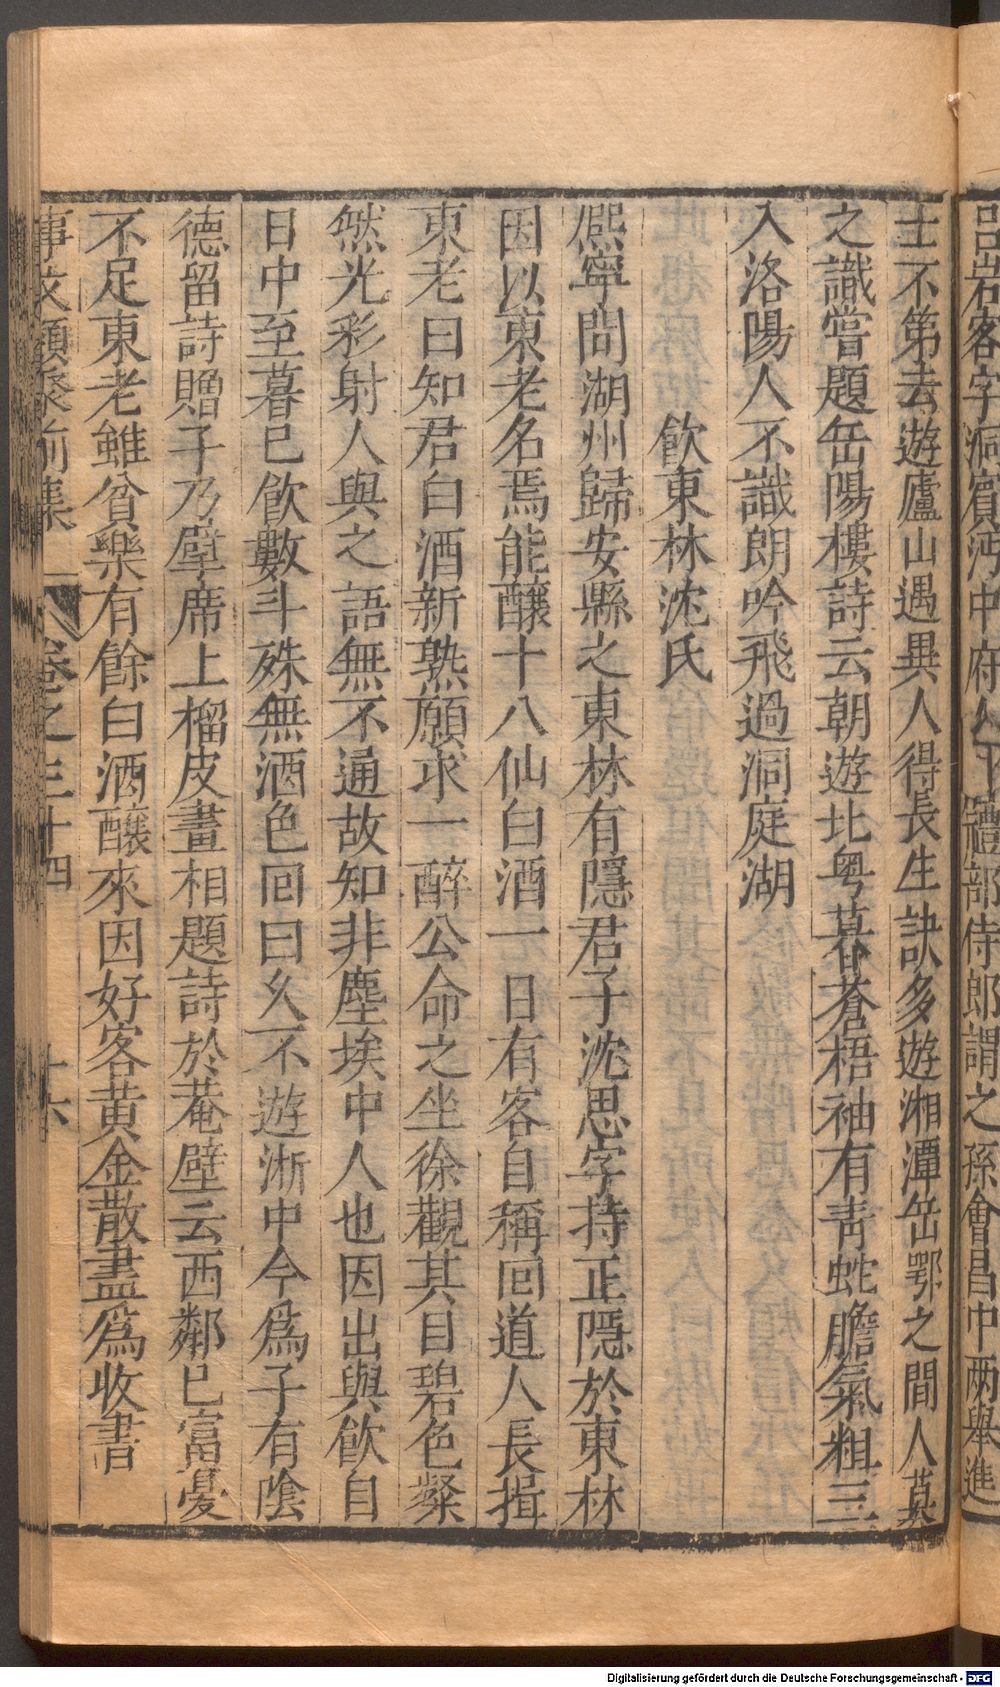 呂岩客字洞賓河中府人禮部侍郎謂之孫會昌中兩舉進
士不第去遊廬山遇異人得長生訣多遊湘潭岳鄂之間人莫
之識嘗題岳陽樓詩云朝遊北粤暮蒼梧袖有青蛇膽氣粗三
入洛陽人不識朗吟飛過洞庭湖
飲東林沈氏
熈寧間湖州歸安縣之東林有隱君子沈思字持正隠於東林
因以東老名焉能釀十八仙白酒一日有客自稱回道人長揖
東老曰知君白酒新熟願求一醉公命之坐徐觀其目碧色粲
然光彩射人與之語無不通故知非塵埃中人也因出與飲自
日中至暮已飲數斗殊無酒色回曰久不遊淅中今爲子有隂
德留詩贈子乃擘席上榴皮畫相題詩於菴壁云西鄰已富憂
不足東老雖貧樂有餘白酒釀來因好客黄金散盡爲收書
事文類聚前集 卷之三十四 十六
Digitalisierung gefördert durch die Deutsche Forschungsgemeinschaft - DFG